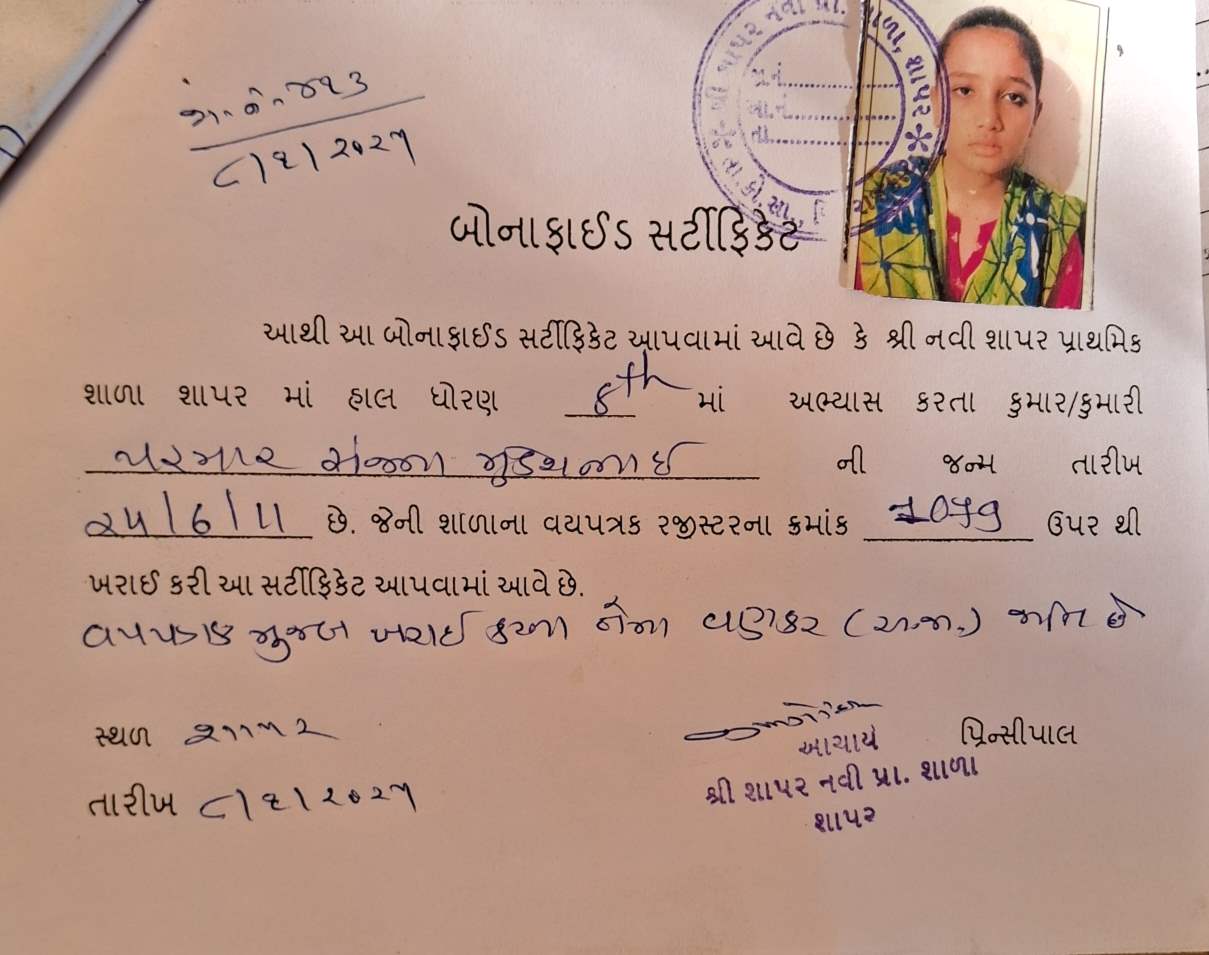 જા.નં. ૪૧૩
૮/૧/૨૦૨૫
શ્રી શાપર નવી પ્રા. શાળા, શાપર
તા.
બોનાફાઈડ સર્ટીફિકેટ
આથી આ બોનાફાઈડ સર્ટીફિકેટ આપવામાં આવે છે કે શ્રી નવી શાપર પ્રાથમિક
શાળા શાપર માં હાલ ધોરણ 8th માં અભ્યાસ કરતા કુમાર/કુમારી
પરમાર સંજના મુકેશભાઈ ની જન્મ તારીખ
૨૫/6/11 છે. જેની શાળાના વયપત્રક રજીસ્ટરના ક્રમાંક ઉપર થી
ખરાઈ કરી આ સર્ટીફિકેટ આપવામાં આવે છે.
વયપત્રક મુજબ ખરાઈ કરતા તેમા વણકર (અ.જા.) જાતિ છે
સ્થળ શાપર
પ્રિન્સીપાલ
આચાર્ય
શ્રી શાપર નવી પ્રા. શાળા
શાપર
તારીખ ૮/૧/૨૦૨૫